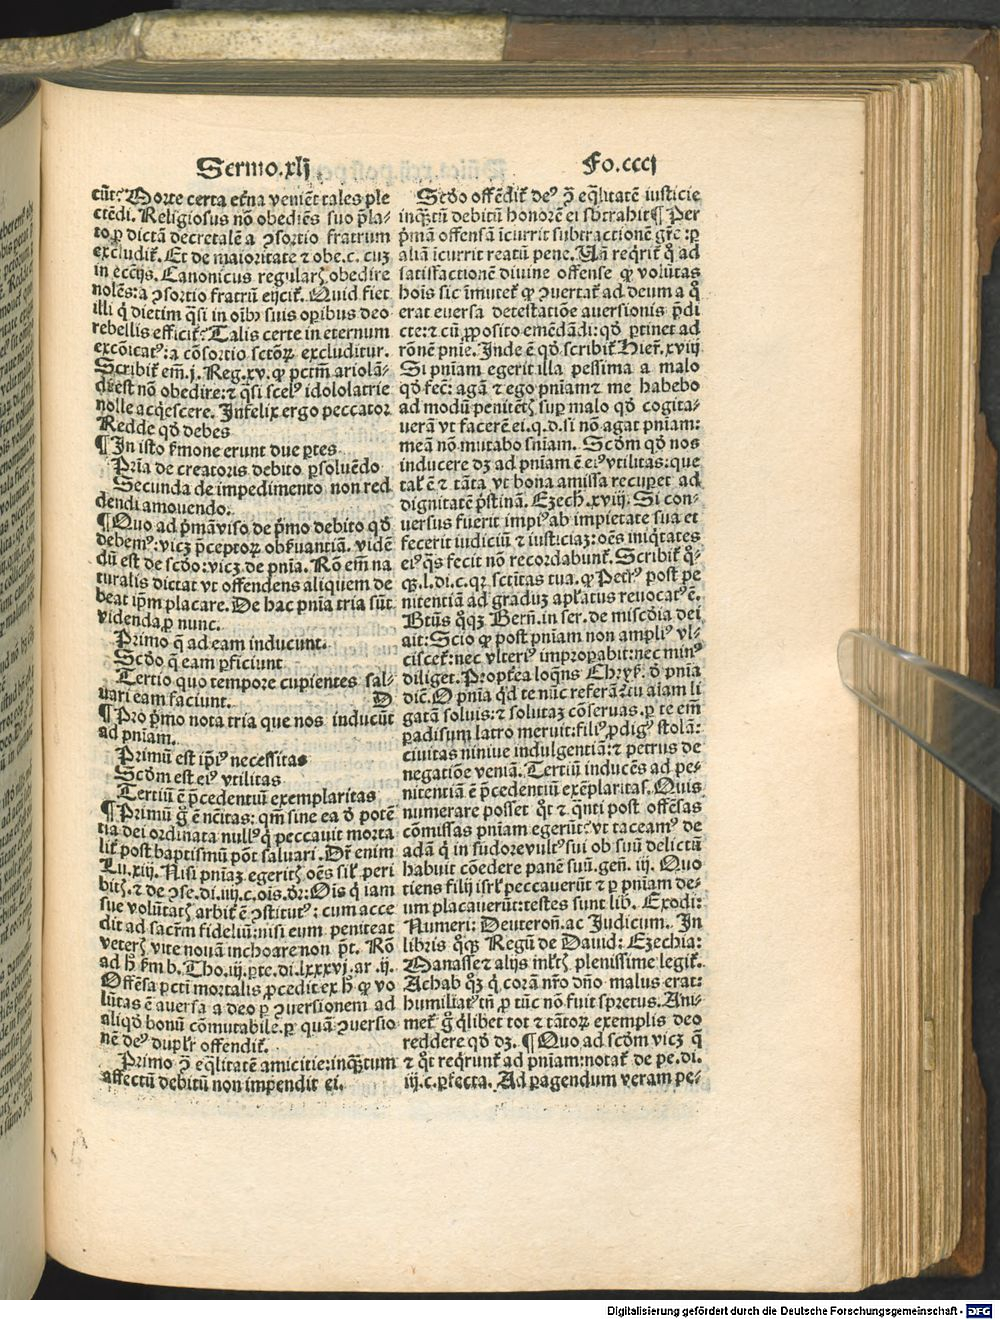 Sermo.xlj
Fo.cccj
cūt? Morte certa et̄na veniēt tales ple
ctēdi. Religiosus nō obediēs suo p̄la-
to ꝑ dictā decretalē a ꝯsortio fratrum
excludit̃. Et de maioritate ⁊ obe.c. cuꝫ
in ecc̄ijs. Canonicus regularꝭ obedire
nolēs: a ꝯsortio fratrū eijcit̃. Quid fiet
illi q̇ dietim q̄si in oībꝰ suis oꝑibus deo
rebellis efficit̃? Talis certe in eternum
excōicatꝰ: a cōsortio sctōꝝ excluditur.
Scribit̃ em̄.j. Reg.xv. ꝙ pctm̄ ariolā-
di est nō obedire: ⁊ q̄si scelꝰ idololatrie
nolle acq̇escere. Infelix ergo peccator
Redde qd̄ debes
¶ In isto s̃mone erunt due ꝑtes
Pria de creatoris debito ꝑsoluēdo
Secunda de impedimento non red
dendi amouendo.
¶ Quo ad p̄mā viso de p̄mo debito qd̄
debemꝰ: vicꝫ p̄ceptoꝝ obs̃uantiā. vidē
dū est de scdo: vicꝫ de pnīa. Rō em̄ na
turalis dictat vt offendens aliquem de
beat ip̄m placare. De hac pnīa tria sūt
videnda ꝑ nunc.
Primo q̄ ad eam inducunt.
Scdo q̄ eam ꝑficiunt
Tertio quo tempore cupientes sal-
uari eam faciunt. D
¶ Pro p̄mo nota tria que nos inducūt
ad pnīam.
Primū est ip̄iꝰ necessitas
Scdm est eiꝰ vtilitas
Tertiū ē p̄cedentiū exemplaritas
¶ Primū g̊ ē nc̄itas: qm̄ sine ea ð potē
tia dei ordinata nullꝰ q̇ peccauit morta
lit̃ post baptismū pōt saluari. Dr̄ enim
Lu.xiij. Nisi pnīaꝫ egeritꝭ oēs sil̃ peri
bitꝭ. ⁊ de ꝯse.di.iiij.c.oīs.dr̄: Oīs q̇ iam
sue volūtatꝭ arbit̃ ē ꝯstitutꝰ: cum acce
dit ad sacr̄m fideliū: nisi eum peniteat
veterꝭ vite nouā inchoare non p̄t. Rō
ad h̄ s̃m b. Tho.iij.ꝑte.di.lxxxvj.ar.ij.
Offēsa pcti mortalis ꝓcedit ex h̄ ꝙ vo
lūtas ē auersa a deo ꝑ ꝯuersionem ad
aliqd̄ bonū cōmutabile. ꝑ quā ꝯuersio
nē deꝰ duplr̄ offendit̃.
Primo ꝯ̄ eq̄litatē amicitie: inqꝫtum
affectū debitū non impendit ei.
Scdo offēdit̃ deꝰ ꝯ̄ eq̄litatē iusticie
inqꝫtū debitū honorē ei sb̄trahit ¶ Per
p̄mam offensā īcurrit subtractionē gr̄e: ꝑ
aliā īcurrit reatū pene. Uñ reqrit̃ q̇ ad
satisfactionē diuine offense ꝙ volūtas
hoīs sic īmutet̃ ꝙ ꝯuertat̃ ad deum a q̊
erat euersa detestatiōe auersionis p̄di
cte: ⁊ cū ꝓposito emēdādi: qd̄ ꝑtinet ad
rōnē pnīe. Inde ē qd̄ scribit̃ Hier̃.xviij
Si pnīam egerit illa pessima a malo
qd̄ fec̃: agā ⁊ ego pnīam ⁊ me habebo
ad modū penitētꝭ suꝑ malo qd̄ cogita-
uerā vt facerē ei. q.d. si nō agat pnīam:
meā nō mutabo sniam. Scdm qd̄ nos
inducere dꝫ ad pnīam ē eiꝰ vtilitas: que
tal̃ ē ⁊ tāta vt bona amissa recuꝑet ad
dignitatē p̄stinā. Ezech.xviij. Si con-
uersus fuerit impiꝰ ab impietate sua et
fecerit iudiciū ⁊ iusticiaꝫ: oēs iniq̇tates
eiꝰ q̄s fecit nō recordabunt̃. Scribit̃ q̊-
qꝫ.l.di.c.qꝛ sctitas tua. ꝙ Petrꝰ post pe
nitentiā ad graduꝫ apl̄atus reuocatꝰ ē.
Btūs q̊qꝫ Bern̄. in ser. de miscdia dei
ait: Scio ꝙ post pnīam non ampliꝰ vl-
ciscet̃: nec vlteriꝰ improꝑabit: nec minꝰ
diliget. Proptea loq̄ns Chrys̃. ð pnīa
dic̄. O pnīa qd̄ te nūc referā? tu aīam li
gatā soluis: ⁊ solutaꝫ cōseruas. ꝑ te em̄
ꝑadisum latro meruit: filiꝰ ꝓdigꝰ stolā:
ciuitas niniue indulgentiā: ⁊ petrus de
negatiōe veniā. Tertiū inducēs ad pe-
nitentiā ē p̄cedentiū exēplaritas. Quis
numerare posset q̊t ⁊ q̄nti post offēsas
cōmissas pnīam egerūt: vt taceamꝰ de
adā q̇ in sudore vultꝰ sui ob suū delictū
habuit cōedere panē suū. gen̄. iij. Quo
tiens filij isrl̄ peccauerūt ⁊ ꝑ pnīam de-
um placauerūt: testes sunt lib. Exodi:
Numeri: Deuteron̄. ac Judicum. In
libris q̊qꝫ Regū de Dauid: Ezechia:
Manasse ⁊ alijs ml̄tꝭ plenissime legit̃.
Achab q̊ꝫ q̇ corā nr̄o dn̄o malus erat:
humiliatꝰ tn̄ ꝑ tūc nō fuit spretus. Ani-
met̃ g̊ q̇libet tot ⁊ tātoꝝ exemplis deo
reddere qd̄ dꝫ. ¶ Quo ad scdm vicꝫ q̄
⁊ q̊t reqrunt̃ ad pnīam: notat̃ de pe.di.
iij.c.ꝑfecta. Ad ꝑagendum veram pe-
Digitalisierung gefördert durch die Deutsche Forschungsgemeinschaft - DFG